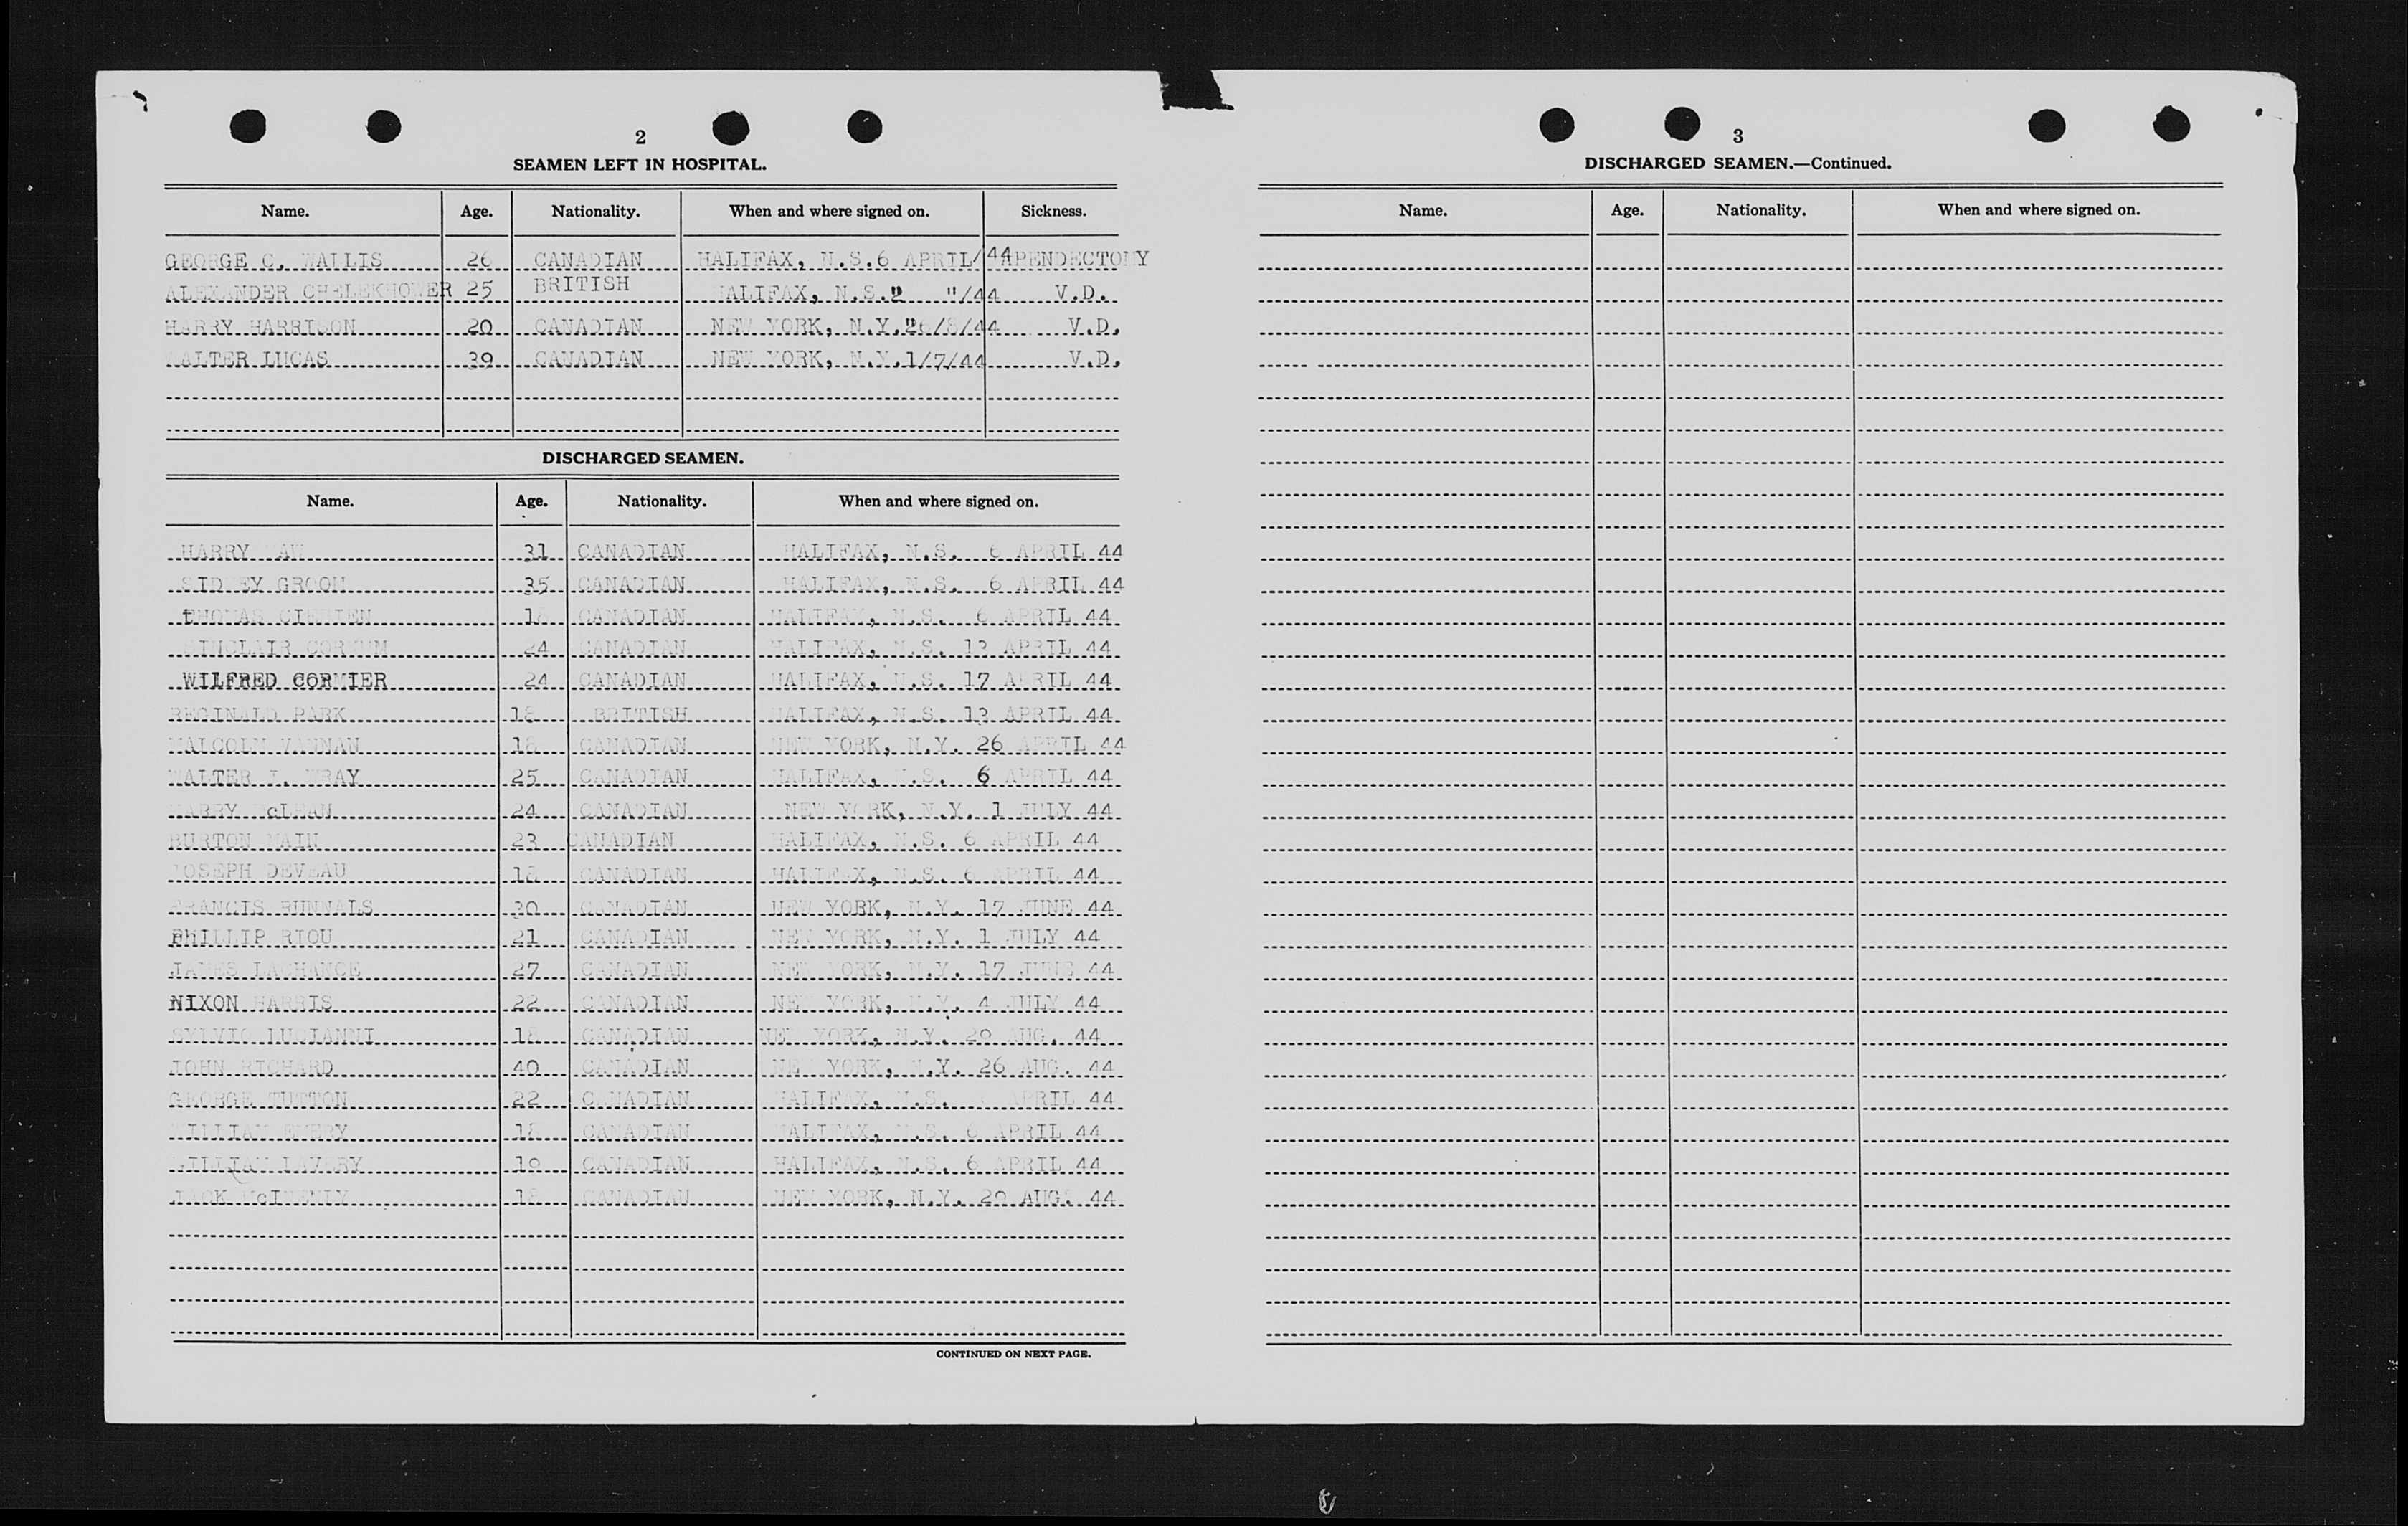 2
SEAMEN LEFT IN HOSPITAL.
Name. Age. Nationality. When and where signed on. Sickness.
GEORGE C. WALLIS 26 CANADIAN HALIFAX, N.S. 6 APRIL/44 APENDECTOMY
ALEXANDER 25 BRITISH HALIFAX, N.S. " "/44 V.D.
HARRY HARRISON 20 CANADIAN NEW YORK, N.Y. 26/8/44 V.D.
WALTER LUCAS 39 CANADIAN NEW YORK, N.Y. 1/7/44 V.D.
DISCHARGED SEAMEN.
Name. Age. Nationality. When and where signed on.
HARRY 31 CANADIAN HALIFAX, N.S. 6 APRIL 44
SIDNEY GROOM 35 CANADIAN HALIFAX, N.S. 6 APRIL 44
tHOMAS CANADIAN HALIFAX, N.S. 6 APRIL 44
SINCLAIR CORKUM 24 CANADIAN HALIFAX, N.S. 13 APRIL 44
WILFRED CORMIER 24 CANADIAN HALIFAX, N.S. 17 APRIL 44
REGINALD PARK 18 BRITISH HALIFAX, N.S. 13 APRIL 44
MALCOLM VANNAN 18 CANADIAN NEW YORK, N.Y. 26 APRIL 44
WALTER WRAY 25 CANADIAN HALIFAX, N.S. 6 APRIL 44
HARRY McLEAN 24 CANADIAN NEW YORK, N.Y. 1 JULY 44
BURTON MAIN 23 CANADIAN HALIFAX, N.S. 6 APRIL 44
JOSEPH DEVEAU 18 CANADIAN HALIFAX, N.S. 6 APRIL 44
FRANCIS RUNNALS 30 CANADIAN NEW YORK, N.Y. 17 JUNE 44
PHILLIP RIOU 21 CANADIAN NEW YORK, N.Y. 1 JULY 44
JAMES LACHANCE 27 CANADIAN NEW YORK, N.Y. 17 JUNE 44
NIXON HARRIS 22 CANADIAN NEW YORK, N.Y. 4 JULY 44
SYLVIO LUCIANNI 18 CANADIAN NEW YORK, N.Y. 29 AUG. 44
JOHN RICHARD 40 CANADIAN NEW YORK, N.Y. 26 AUG. 44
GEORGE TUTTON 22 CANADIAN HALIFAX, N.S. 6 APRIL 44
WILLIAM EMERY 18 CANADIAN HALIFAX, N.S. 6 APRIL 44
WILLIAM LAVERY 19 CANADIAN HALIFAX, N.S. 6 APRIL 44
JACK CANADIAN NEW YORK, N.Y. 29 AUG. 44
CONTINUED ON NEXT PAGE.
3
DISCHARGED SEAMEN.—Continued.
Name. Age. Nationality. When and where signed on.